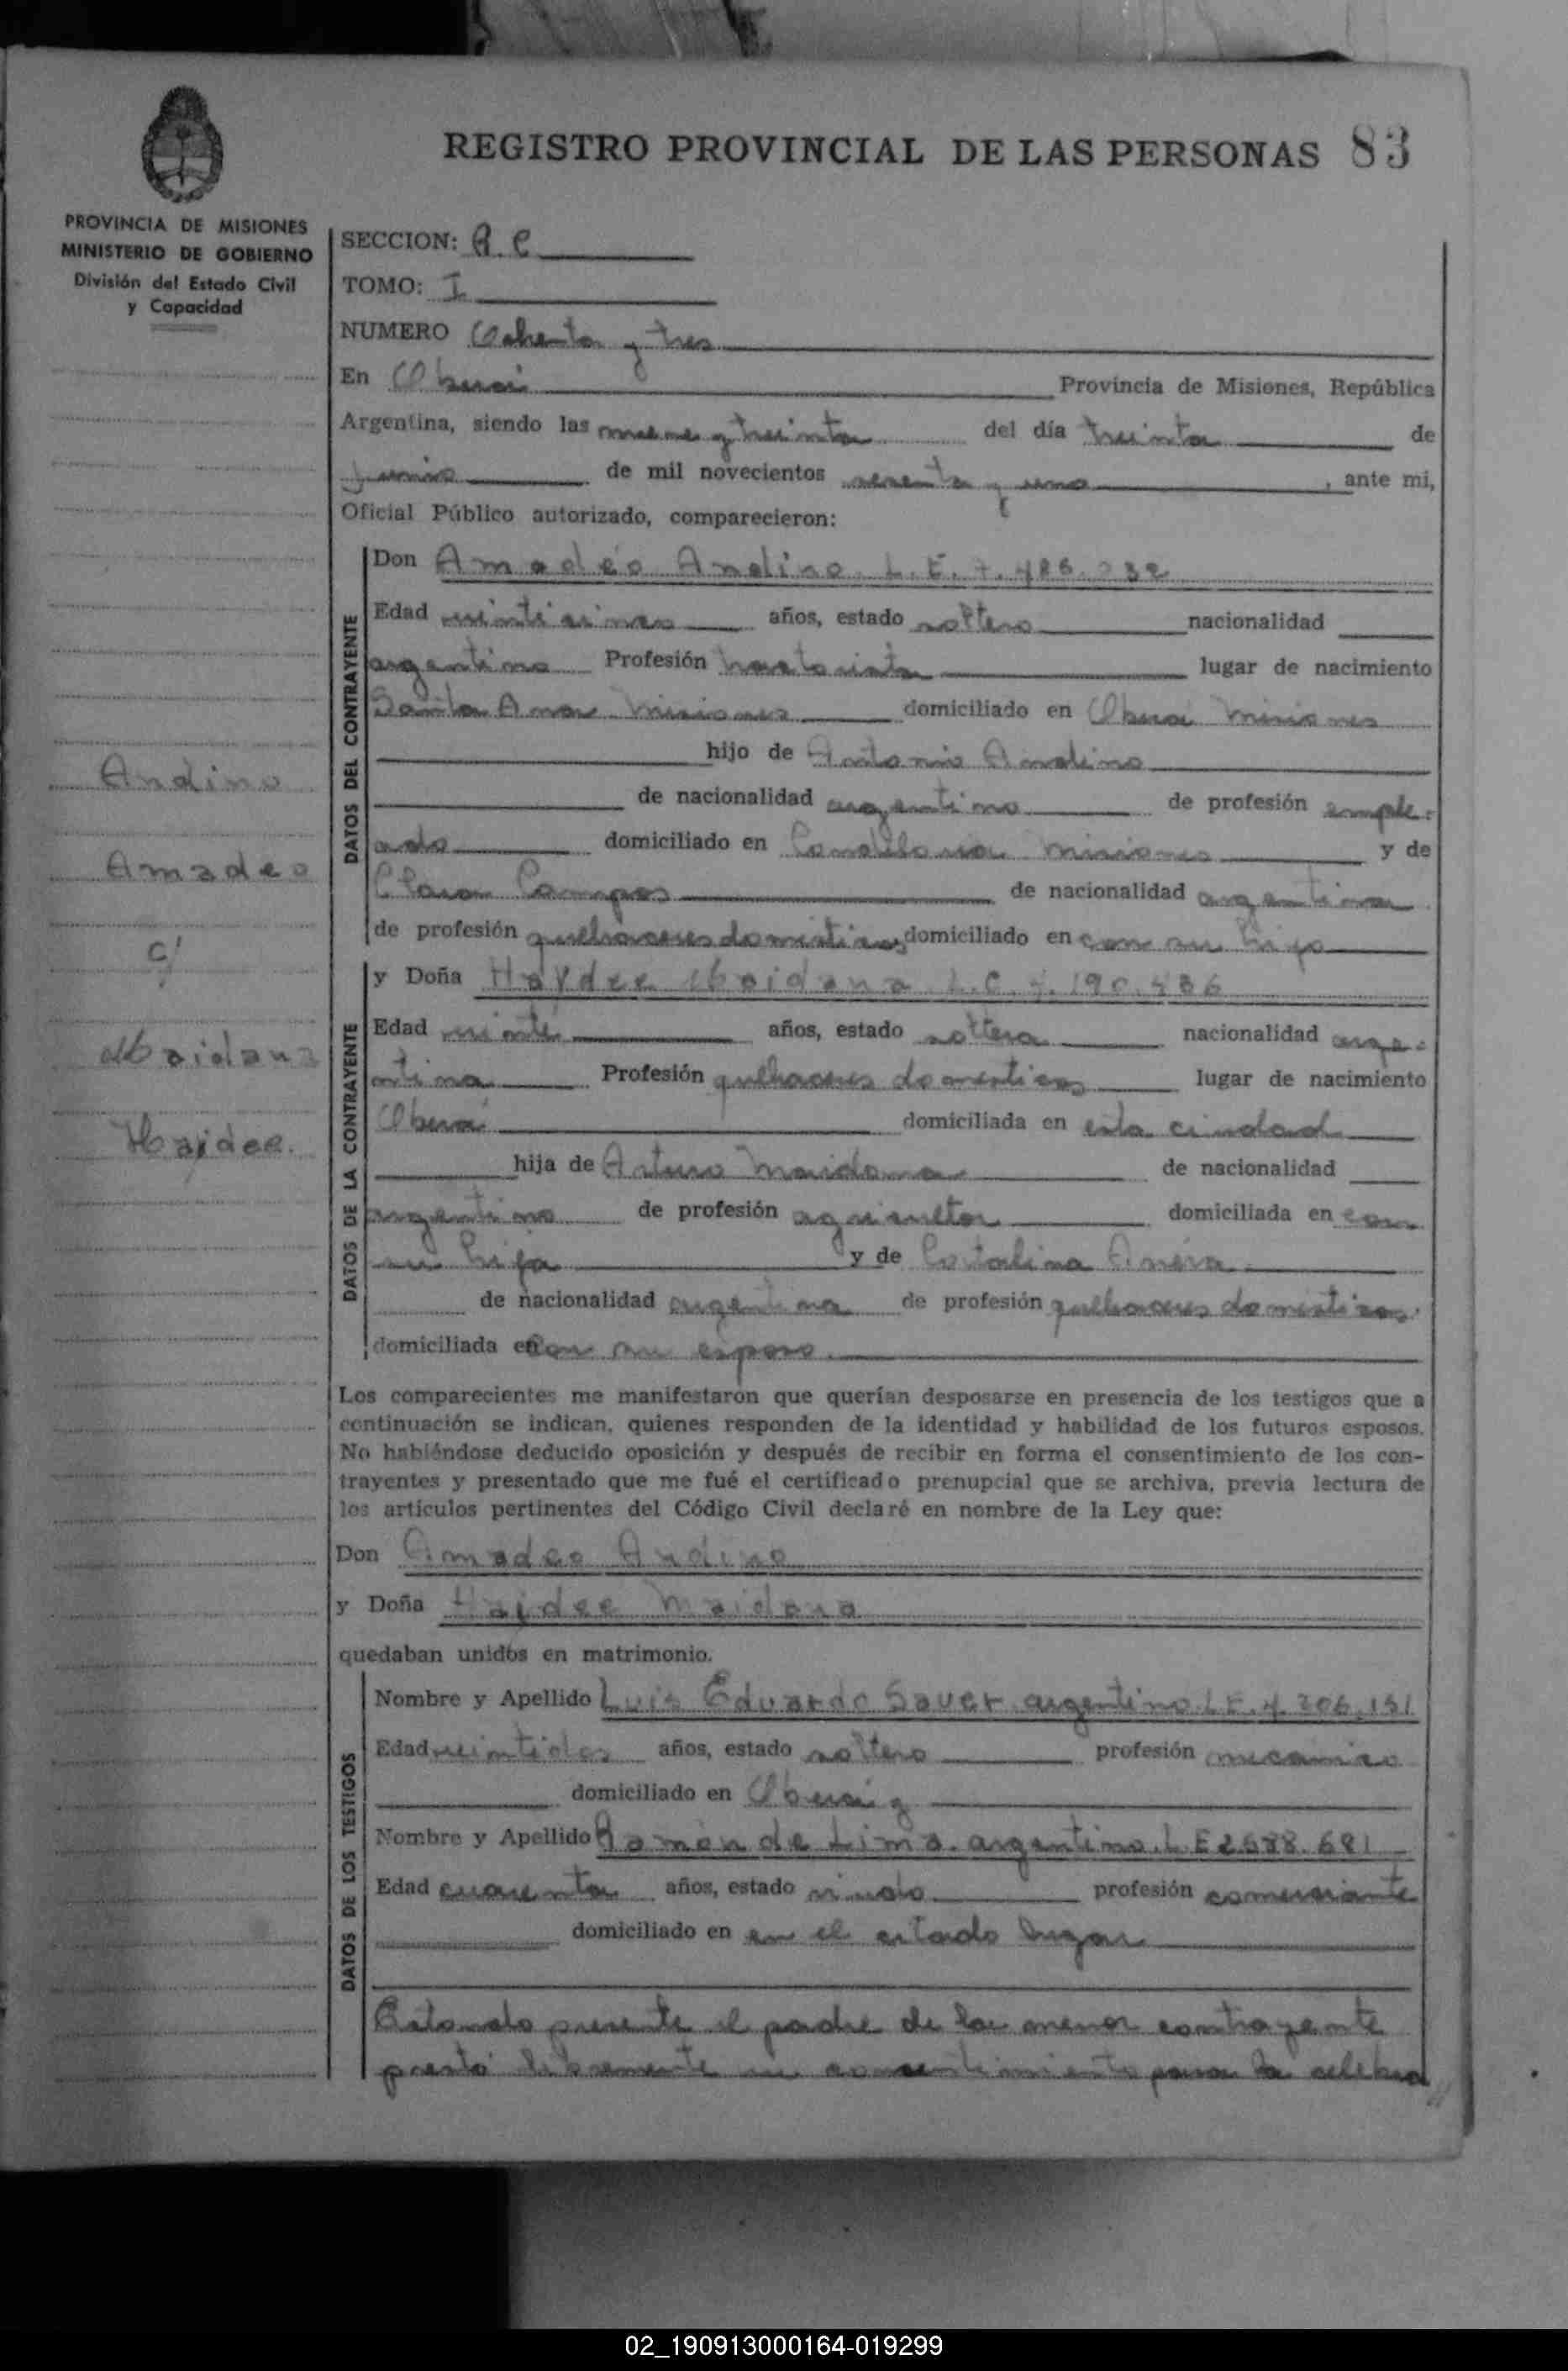 REGISTRO PROVINCIAL DE LAS PERSONAS 83
PROVINCIA DE MISIONES
MINISTERIO DE GOBIERNO
División del Estado Civil
y Capacidad
Andino
Amadeo
c/
Maidana
Haidee.
SECCION: R. C
TOMO: I
NUMERO Ochenta y tres
En Oberá Provincia de Misiones, República
Argentina, siendo las nueve y treinta del día treinta de
junio de mil novecientos sesenta y uno, ante mi,
Oficial Público autorizado, comparecieron:
DATOS DEL CONTRAYENTE
Don Amadeo Andino. L. E. 7.
Edad años, estado soltero nacionalidad
argentino Profesión tractorista lugar de nacimiento
Santa Ana Misiones domiciliado en Oberá Misiones
hijo de Antonio Andino
de nacionalidad argentino de profesión emple-
ado domiciliado en Candelaria Misiones y de
Clara Campos de nacionalidad argentina
de profesión quehaceres domésticos domiciliado en con su hijo
DATOS DE LA CONTRAYENTE
y Doña Haydee Maidana L.C. 4.190.436
Edad veinte años, estado soltera nacionalidad arge-
ntina Profesión quehaceres domésticos lugar de nacimiento
Oberá domiciliada en esta ciudad
hija de Arturo Maidana de nacionalidad
argentino de profesión agricultor domiciliada en con
su hija y de Catalina
de nacionalidad argentina de profesión quehaceres domésticos
domiciliada en con su esposo.
Los comparecientes me manifestaron que querían desposarse en presencia de los testigos que a
continuación se indican, quienes responden de la identidad y habilidad de los futuros esposos.
No habiéndose deducido oposición y después de recibir en forma el consentimiento de los con-
trayentes y presentado que me fué el certificado prenupcial que se archiva, previa lectura de
los artículos pertinentes del Código Civil declaré en nombre de la Ley que:
Don Amadeo Andino
y Doña Haidee Maidana
quedaban unidos en matrimonio.
DATOS DE LOS TESTIGOS
Nombre y Apellido Luis Eduardo Sauer argentino L.E. 4.206.151
Edad veintidos años, estado soltero profesión mecanico
domiciliado en Oberá y
Nombre y Apellido Ramón de Lima. argentino. L.E 2.688.681
Edad cuarenta años, estado viudo profesión comerciante
domiciliado en en el citado lugar
Estando presente el padre de la menor contrayente
prestó libremente su consentimiento para la celebra
02_190913000164-019299